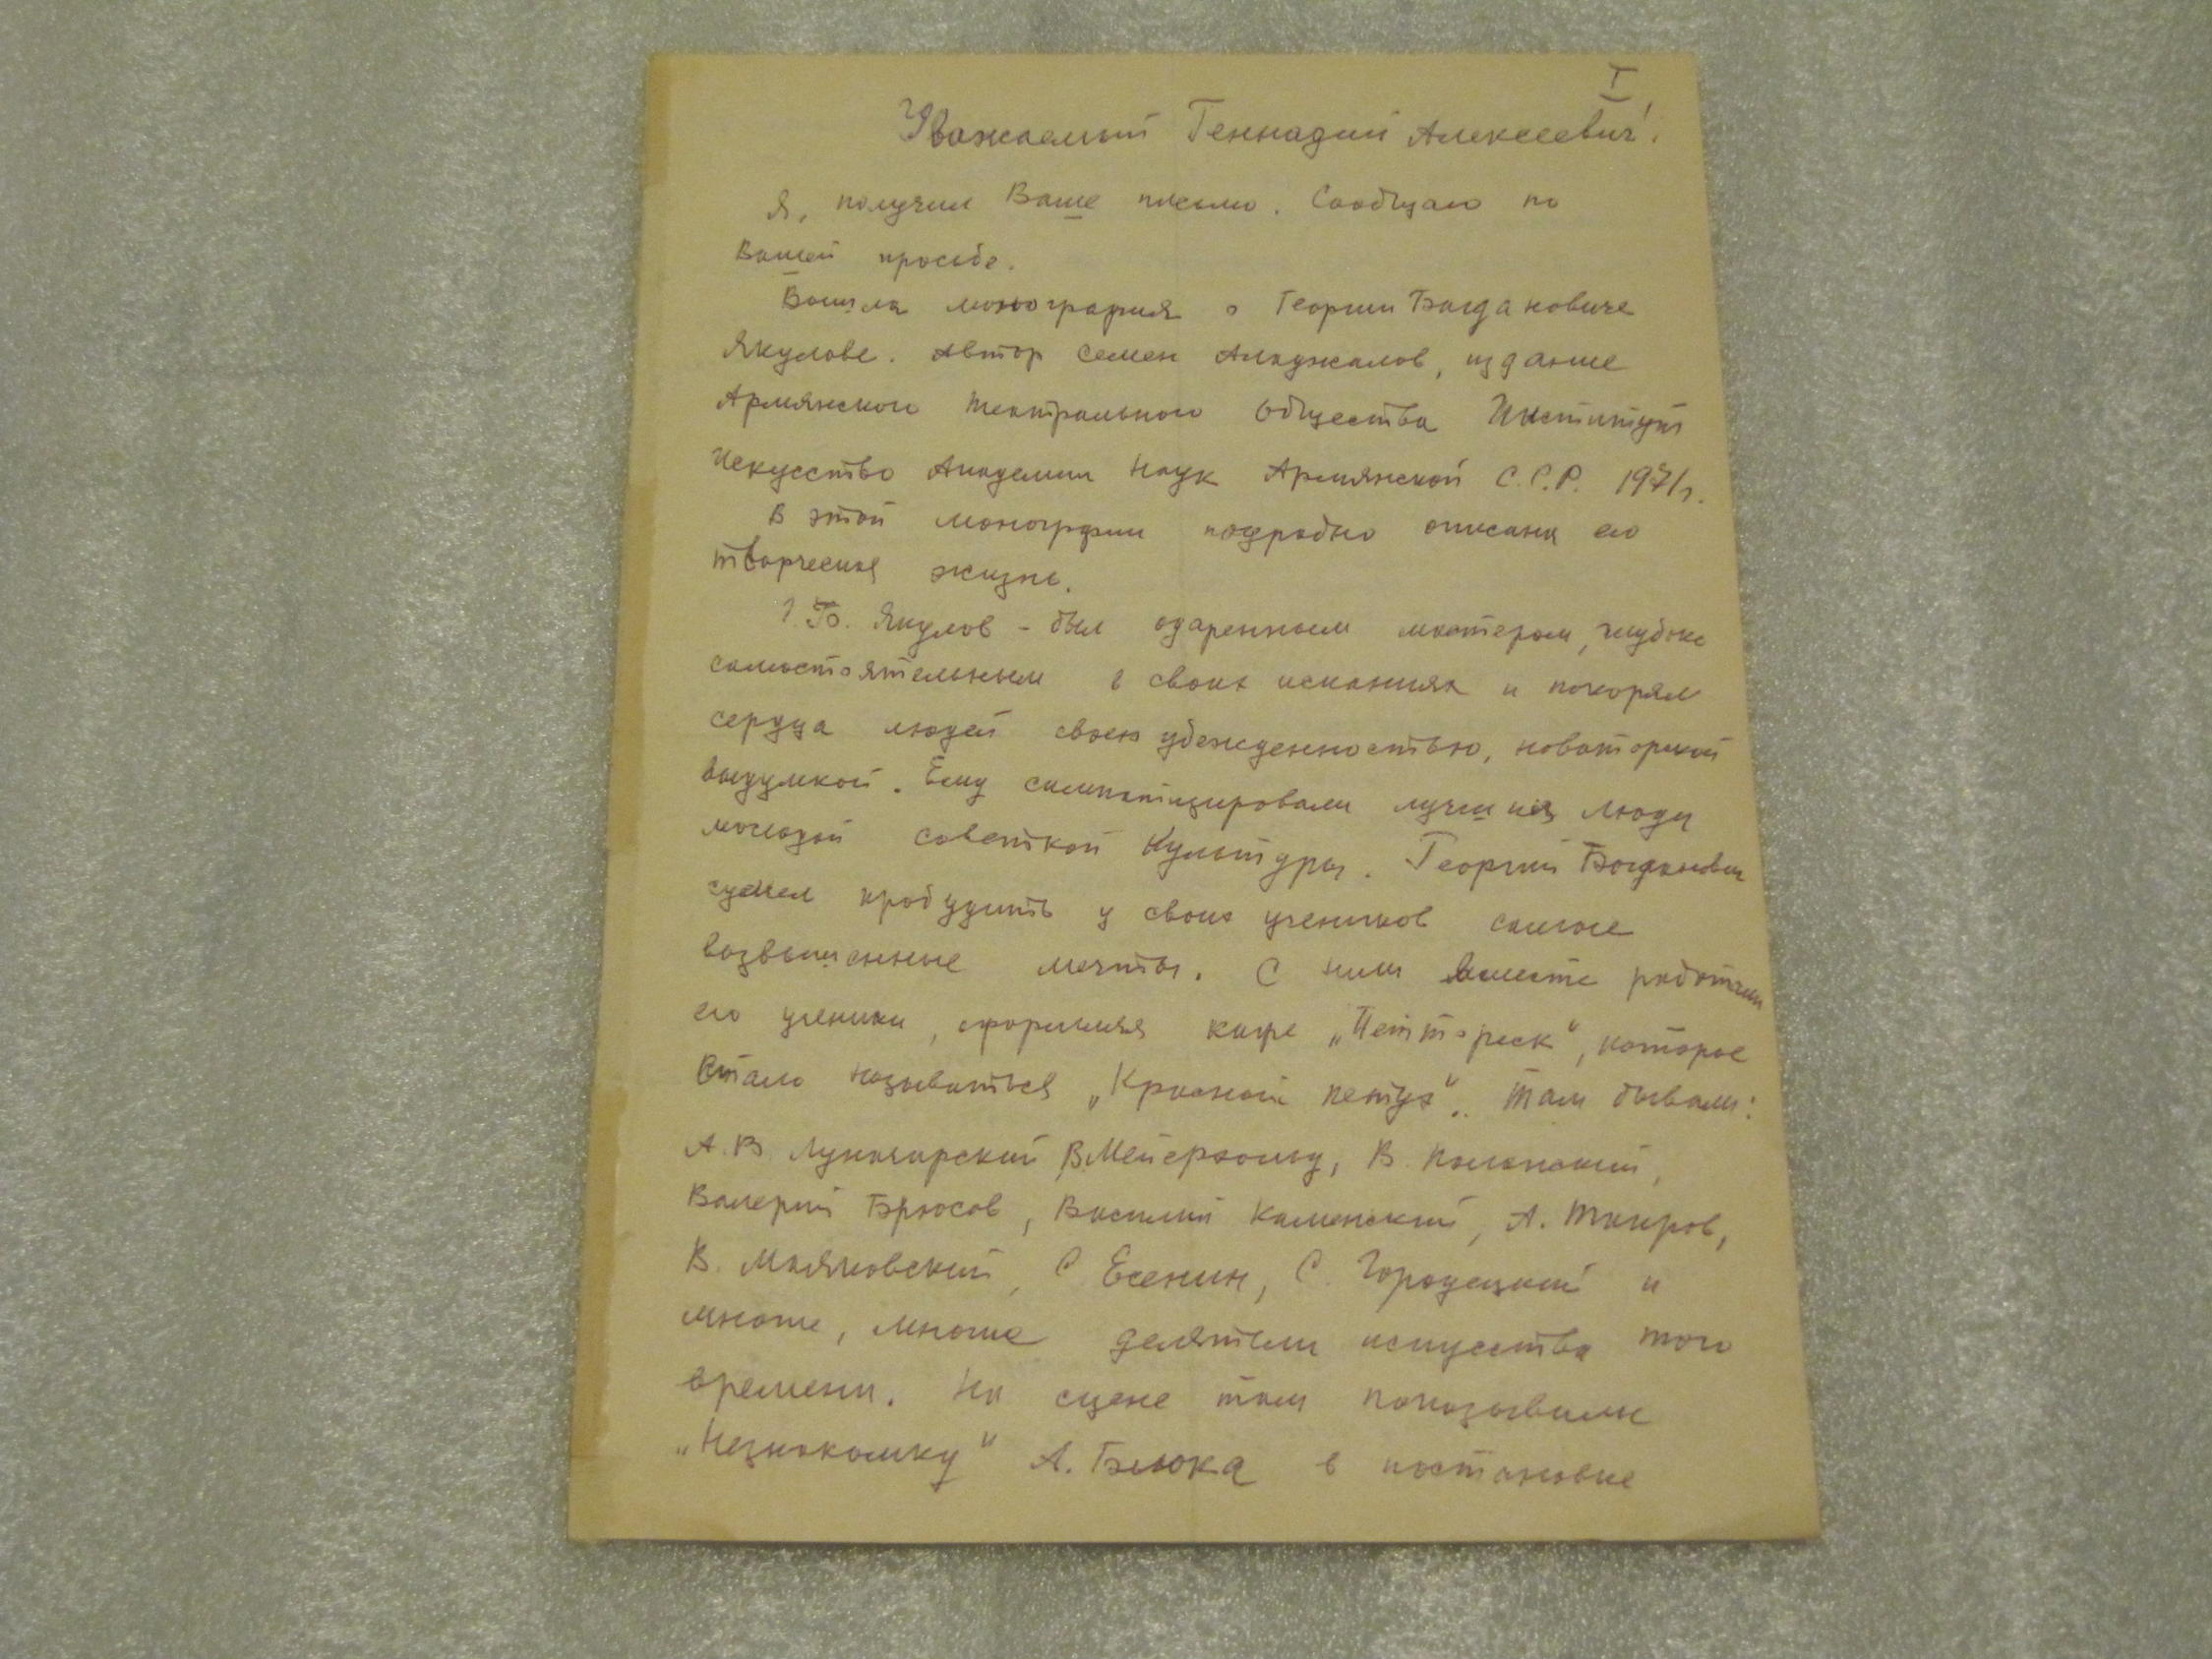 I
Уважаемый Геннадий Алексеевич!
Я, получил Ваше письмо. Сообщаю по
Вашей просьбе.
Вышла монография о Георгии Богдановиче
Якулове. Автор Семен Аладжалов, издание
Армянского театрального общества Институт
Искусство Академии Наук Армянской С.С.Р. 1971г.
В этой моногрфии подробно описана его
творческая жизнь.
Г.Б. Якулов - был одаренным мастером, глубоко
самостоятельным в своих исканиях и покорял
сердца людей своею убежденностью, новаторской
выдумкой. Ему симпатизировали лучшия люди
молодой советской Культуры. Георгий Богданович
сумел пробудить у своих учеников самые
возвышенные мечты. С ним вместе работали
его ученики, оформляя кафе „Питтореск“, которое
стало называться „Красный петух“. Там бывали:
А.В. Луначарский, В.Мейерхольд, В.
Валерий Брюсов, Василий Каменский, А. Таиров,
В. Маяковский, С. Есенин, С. Городецкий и
многие, многие деятели искусства того
времени. На сцене там показывали
„Незнакомку“ А. Блока в постановке